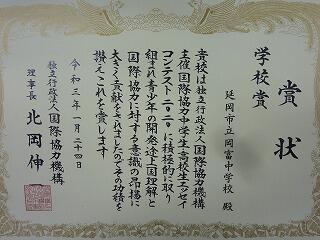 賞状
学校賞
延岡市立岡富中学校 殿
貴校は独立行政法人国際協力機構
主催国際協力中学生・高校生エッセイ
コンテスト二〇二〇に積極的に取り
組まれ青少年の開発途上国理解と
国際協力に対する意識の昂揚に
大きく貢献をされましたのでその功績を
讃えこれを賞します
令和三年一月二十四日
独立行政法人国際協力機構
理事長 北岡伸一